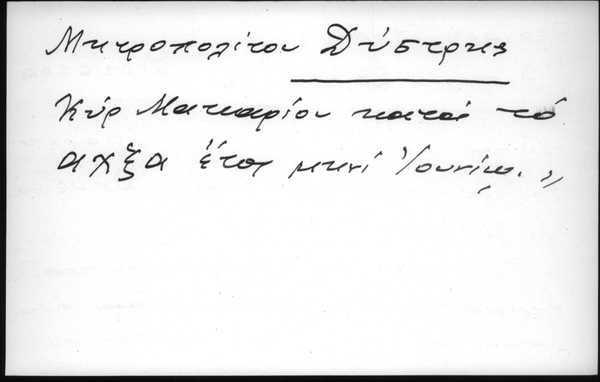 Μητροπολίτου Δύστρης
Κύρ Μακαρίου κατά τό
αχξα έτος μηνί Ἰουνίῳ. "